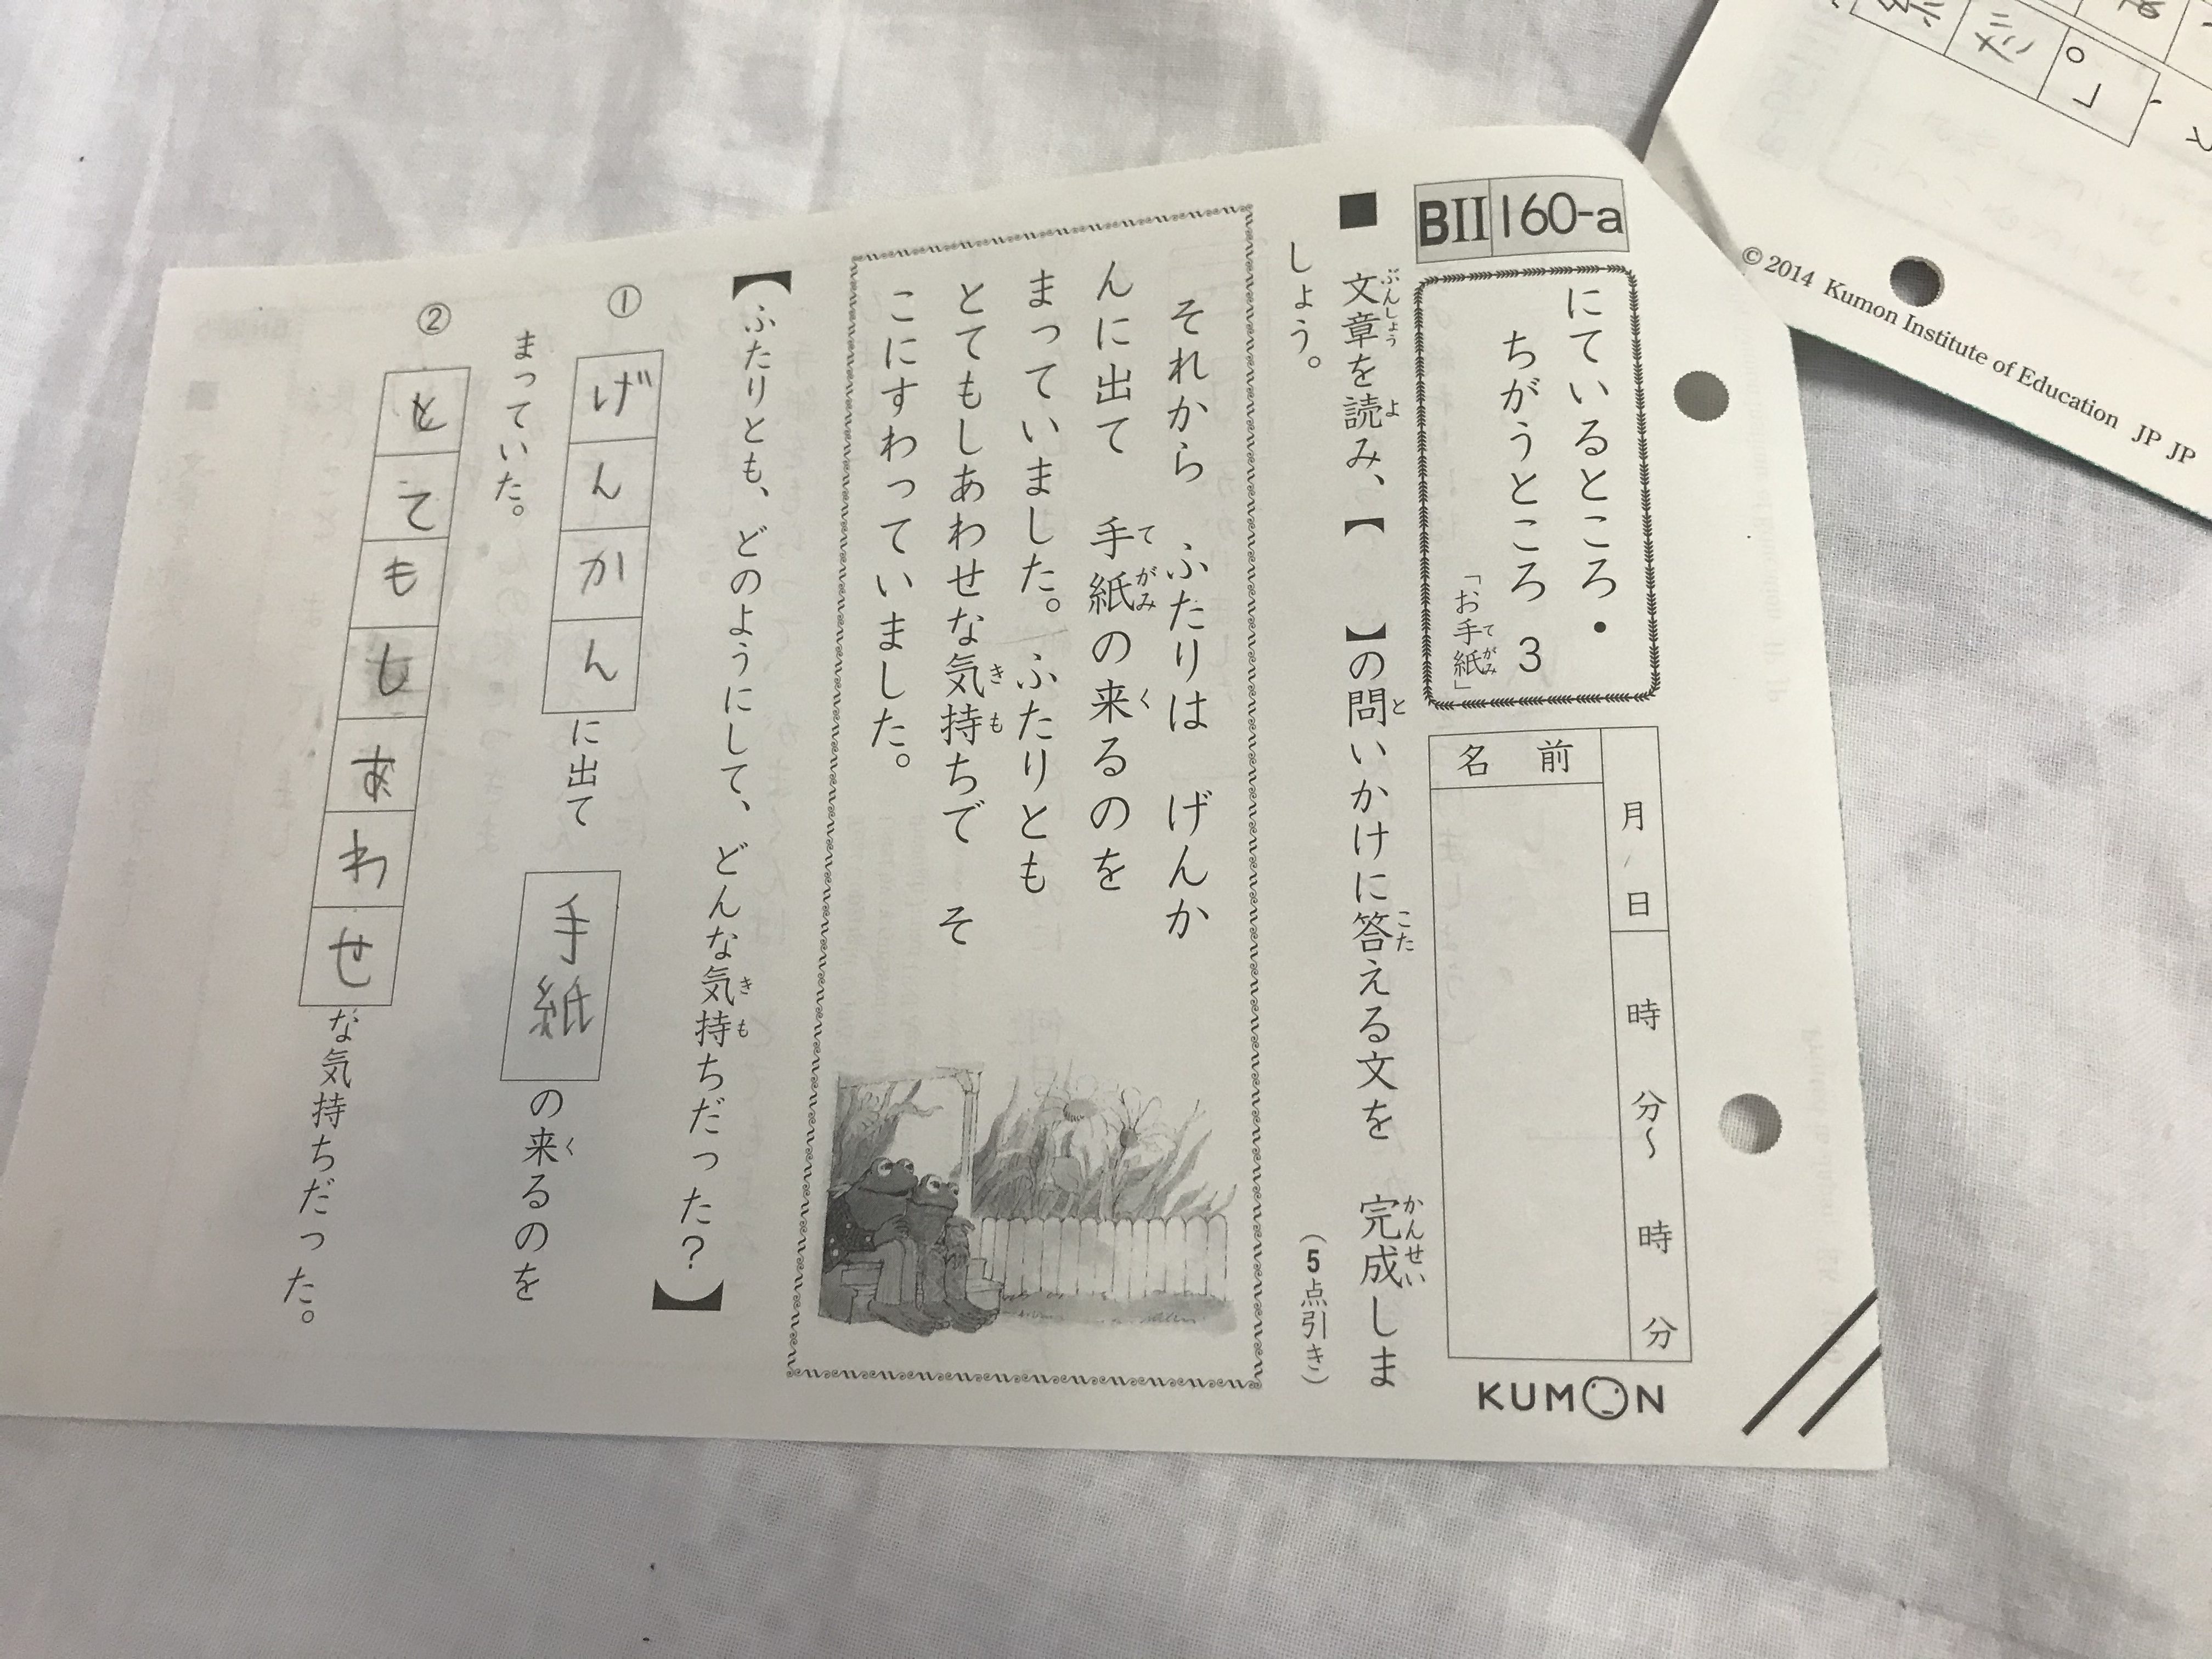 BII 160-a
にているところ・
ちがうところ 3
「お手紙」
てがみ
月 日 時 分〜 時 分
名前
KUMON
■ 文章を読み、【 】の問いかけに答える文を 完成しま
ぶんしょう よ と こた かんせい
しょう。
(5点引き)
それから ふたりは げんか
んに出て 手紙の来るのを
てがみ く
まっていました。ふたりとも
とてもしあわせな気持ちで そ
きも
こにすわっていました。
【ふたりとも、どのようにして、どんな気持ちだった?】
きも
① げんかんに出て 手紙の来るのを
く
まっていた。
② とてもしあわせな気持ちだった。
© 2014 Kumon Institute of Education JP JP